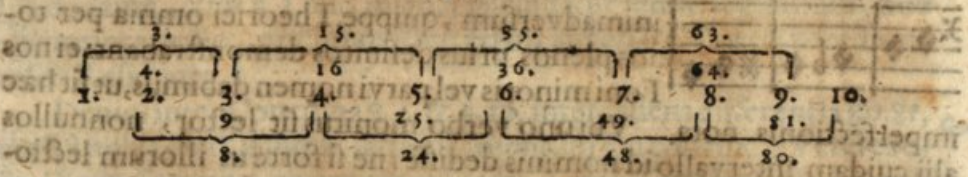 3. 15. 35. 63.
4. 16 36. 64.
1. 2. 3. 4. 5. 6. 7. 8. 9. 10.
9 25. 49. 81.
8. 24. 48. 80.